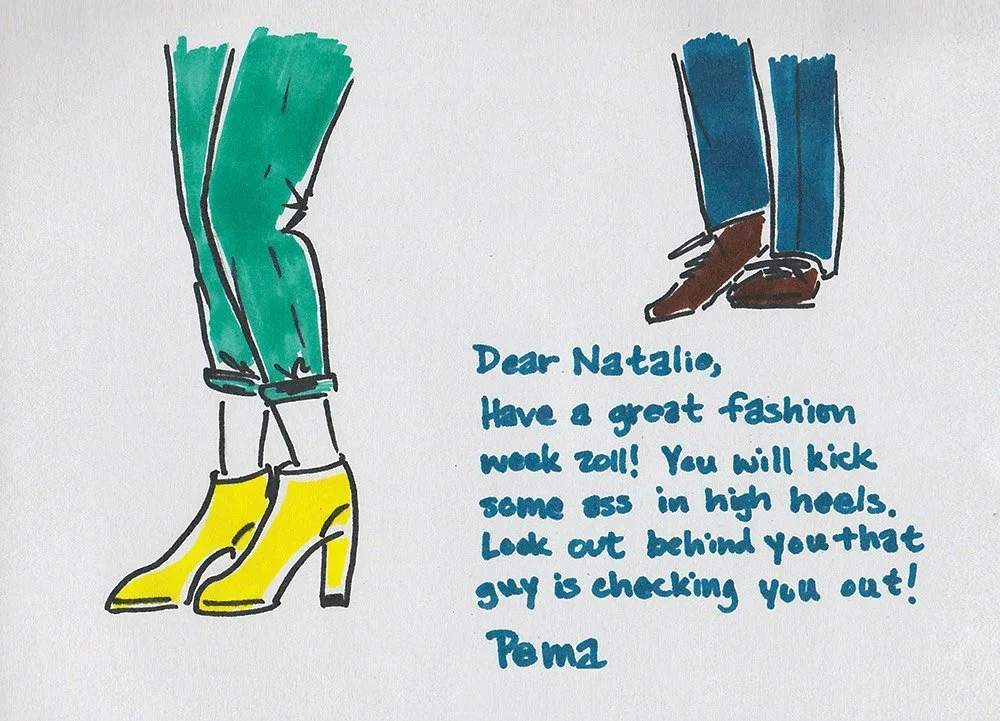 Dear Natalie,
Have a great fashion
week 2011! You will kick
some ass in high heels.
Look out behind you that
guy is checking you out!
Pema